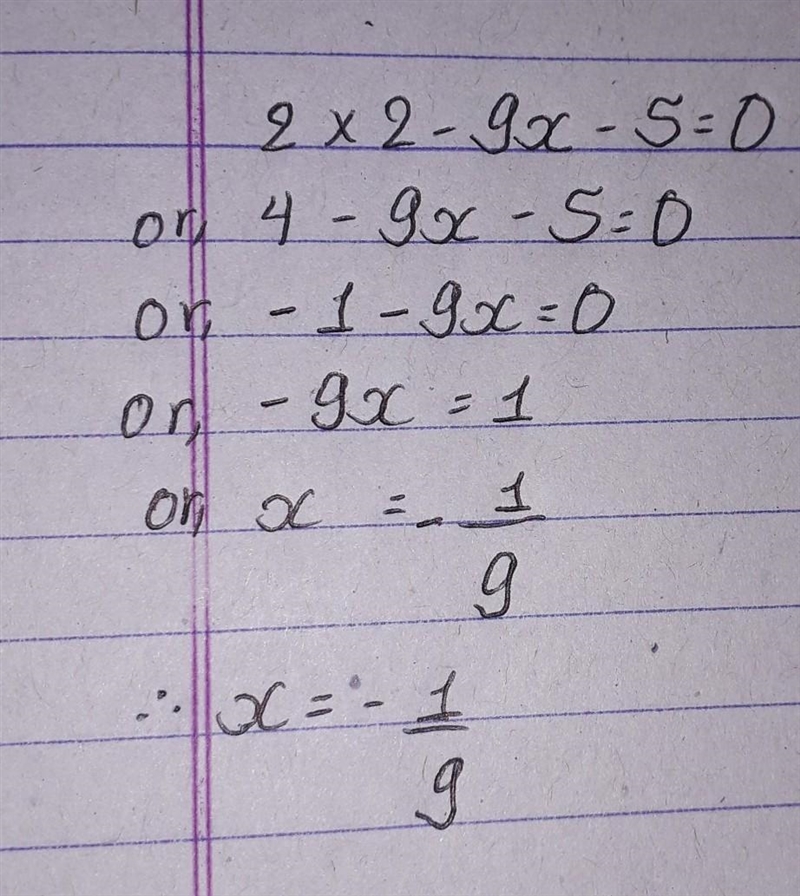 2 × 2 - 9x - 5 = 0
or, 4 - 9x - 5 = 0
or, - 1 - 9x = 0
or, - 9x = 1
or, x = - 1/9
∴ x = - 1/9